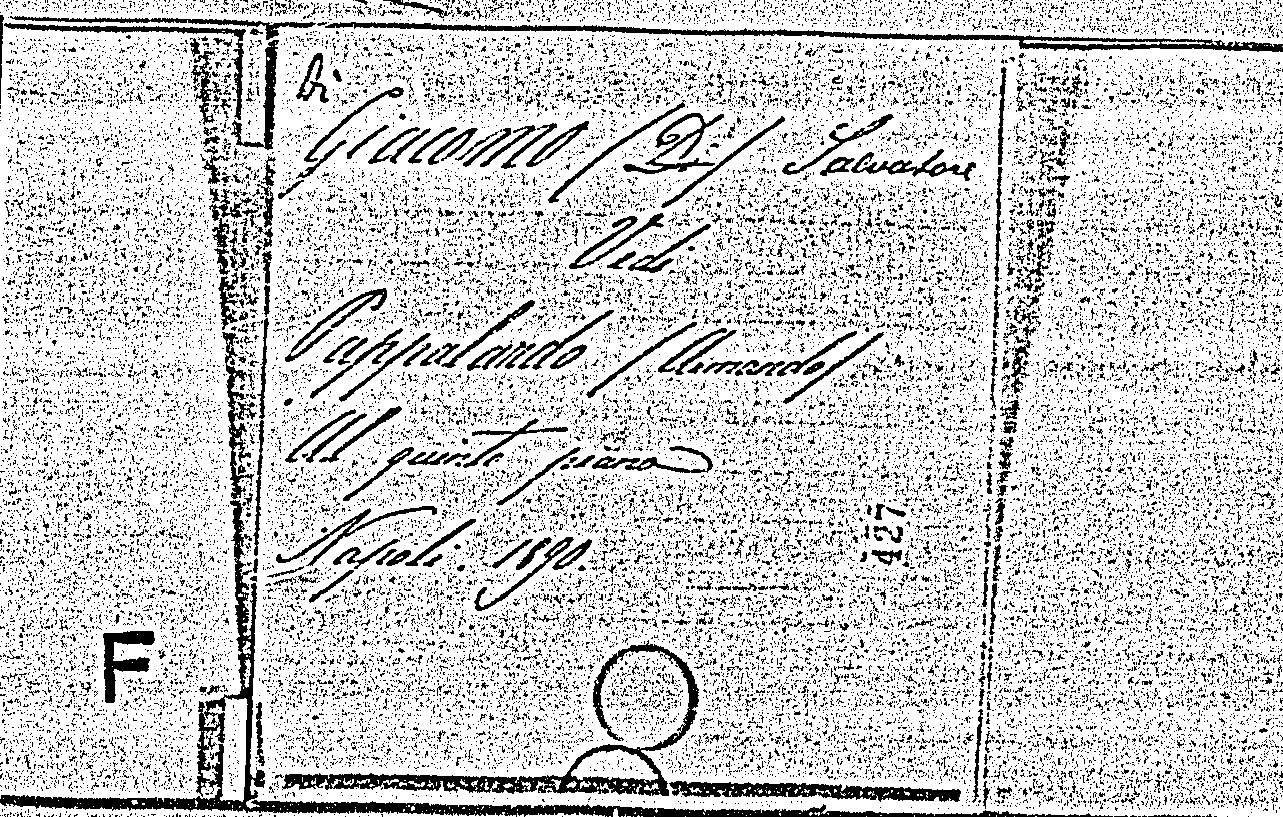 Di
Giacomo / Di / Salvatore
Vedi
Pappalardo / Armando /
Al quinto piano
Napoli. 1890.
427
F